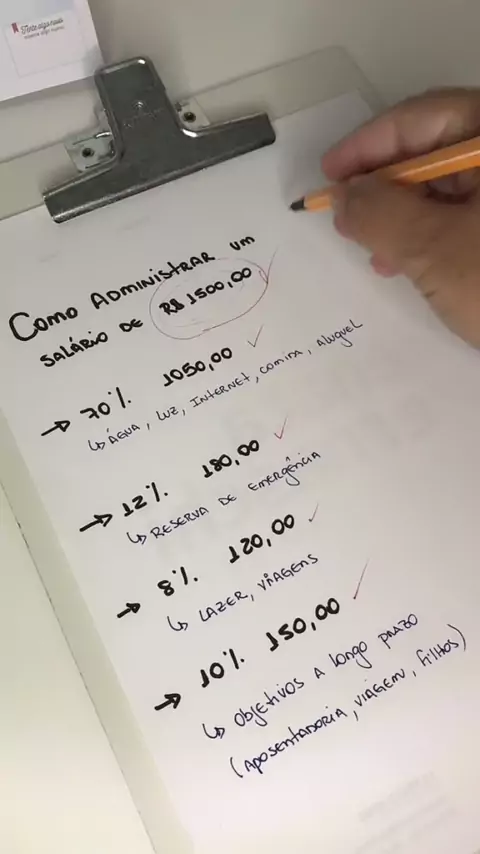 Como ADMINISTRAR um
SALÁRIO DE R$ 1500,00
→ 70% 1050,00 ✓
↳ ÁGUA, LUZ, INTERNET, COMIDA, ALUGUEL
→ 12% 180,00 ✓
↳ RESERVA DE EMERGÊNCIA
→ 8% 120,00 ✓
↳ LAZER, VIAGENS
→ 10% 150,00 ✓
↳ OBJETIVOS A LONGO PRAZO
(APOSENTADORIA, VIAGEM, FILHOS)